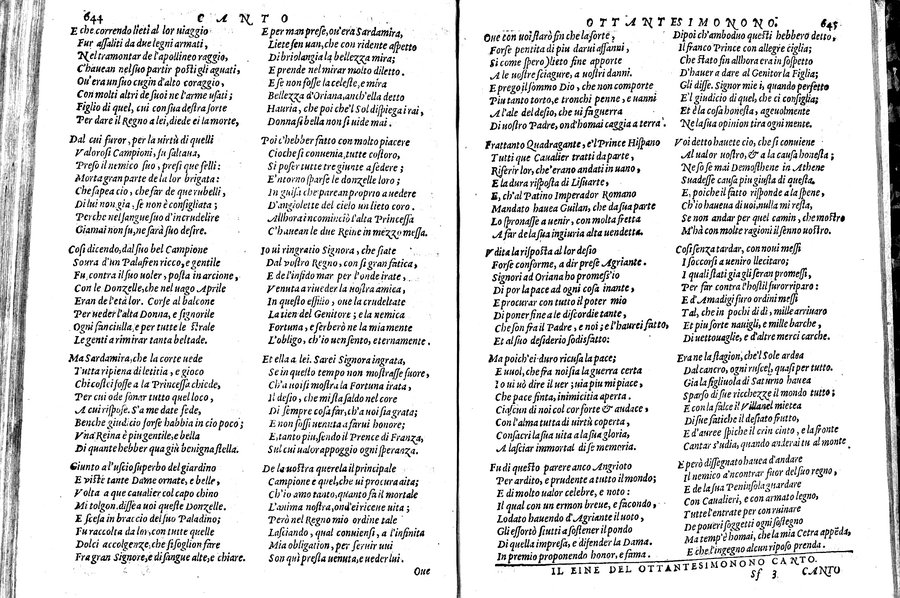 644 CANTO
E che correndo lieti al lor uiaggio
Fur assaliti da due legni armati,
Nel tramontar de l'apollineo raggio,
C'hauean nel suo partir posti gli aguati,
Ou'era un suo cugin d'alto coraggio,
Con molti altri de suoi ne l'arme usati;
Figlio di quel, cui con sua destra forte
Per dare il Regno a lei, diede ei la morte,
Dal cui furor, per la virtù di quelli
Valorosi Campioni, fu saluaa,
Preso il nemico suo, presi que felli:
Morta gran parte de la lor brigata:
Che sapea cio, che far de que rubelli,
Di lui non già, se non è consigliata;
Perche nel sangue suo d'incrudelire
Giamai non fu, ne sarà suo desire.
Così dicendo, dal suo bel Campione
Soura d'un Palafren ricco, e gentile
Fu, contra il suo uoler, posta in arcione,
Con le Donzelle, che nel uago Aprile
Eran de l'età lor. Corse al balcone
Per ueder l'alta Donna, e signorile
Ogni fanciulla, e per tutte le strale
Le genti a rimirar tanta beltade.
Ma Sardamira, che la corte uede
Tutta ripiena di letitia, e gioco
Chi costei fosse a la Princessa chiede,
Per cui ode sonar tutto quel loco,
A cui rispose. S'a me date fede,
Benche giudicio forse habbia in cio poco;
Vna Reina è piu gentile, e bella
Di quante hebber qua giù benigna stella.
Giunto al'uscio superbo del giardino
E viste tante Dame ornate, e belle,
Volta a que caualier col capo chino
Mi tolgon. disse a uoi queste Donzelle.
E scesa in braccio del suo Paladino;
Fu raccolta da lor, con tutte quelle
Dolci accolgenze, che si soglion fare
Fra gran Signore, e di sangue alte, e chiare.
E per man prese, ou'era Sardamira,
Liete sen uan, che con ridente aspetto
Di briolangia la bellezza mira;
E prende nel mirar molto diletto.
E se non fosse la celeste, e mira
Bellezza d'Oriana, anch'ella detto
Hauria, che poi che'l Sol dispiega i rai,
Donna sì bella non si uide mai.
Poi c'hebber fatto con molto piacere
Cio che si conuenia, tutte costoro,
Si poser tutte tre giunte a sedere;
E'ntorno sparse le donzelle loro;
In guisa che parean proprio a uedere
D'angiolette del cielo un lieto coro.
Allhora incominciò l'alta Princessa
C'hauean le due Reine in mezzo messa.
Io ui ringratio Signora, che siate
Dal uostro Regno, con sì gran fatica,
E de l'infido mar per l'onde irate,
Venuta a riueder la uostra amica,
In questo essilio, oue la crudeltate
La tien del Genitore; e la nemica
Fortuna, e serberò ne la mia mente
L'obligo, ch'io uen sento, eternamente.
Et ella a lei. Sarei Signora ingrata,
Se in questo tempo non mostrasse fuore,
Ch'a uoi si mostra la Fortuna irata,
Il desio, che mi sta saldo nel core
Di sempre cosa far, ch'a uoi sia grata;
E non fossi uenuta a farui honore;
E tanto piu, sendo il Prence di Franza,
Sul cui ualor appoggio ogni speranza.
De la uostra querela il principale
Campione e quel, che ui procura aita;
Ch'io amo tanto, quanto fa il mortale
L'anima nostra, ond'ei riceue uita;
Però nel Regno mio ordine tale
Lasciando, qual conuiensi, a l'infinita
Mia obligation, per seruir uui
Son quì presta uenuta, e uederlui.
Oue
OTTANTESIMONONO. 645
Oue con uoi starò fin che la sorte,
Forse pentita di piu darui affanni,
Si come spero, lieto fine apporte
A le uostre sciagure, a uostri danni.
E prego il sommo Dio, che non comporte
Piu tanto torto, e tronchi penne, e uanni
A l'ale del desio, che ui fa guerra
Di uostro Padre, ond'homai caggia a terra.
Frattanto Quadragante, e'l Prince Hispano
Tutti que Caualier tratti da parte,
Riferir lor, che'erano andati in uano,
E la dura risposta di Lisuarte,
E, ch'al Patino Imperador Romano
Mandato hauea Guilan, che da sua parte
Lo spronasse a uenir, con molta fretta
A far de la sua ingiuria alta uendetta.
Vdita la risposta al lor desio
Forse conforme, a dir prese Agriante.
Signori ad Oriana ho promess'io
Di por la pace ad ogni cosa inante,
E procurar con tutto il poter mio
Di poner fine a le discordie tante,
Che son fra il Padre, e noi; e l'haurei fatto,
Et al suo desiderio sodisfatto:
Ma poich'ei duro ricusa la pace;
E uuol, che fra noi sia la guerra certa
Io ui uò dire il uer; uia piu mi piace,
Che pace finta, inimicitia aperta.
Ciascun di noi col cor forte & audace,
Con l'alma tutta di uirtù coperta,
Consacri la sua uita a la sua gloria,
A lasciar immortal di se memoria.
Fu di questo parere anco Angrioto
Per ardito, e prudente a tutto il mondo;
E di molto ualor celebre, e noto:
Il qual con un ermon breue, e facondo,
Lodato hauendo d'Agriante il uoto,
Gli essortò tutti a sostener il pondo
Di quella impresa, e difender la Dama.
in premio proponendo honor, e fama.
Dipoi ch'amboduo questi hebbero detto,
Il franco Prince con allegre ciglia;
Che stato fin allhora era in sospetto
D'hauer a dare al Genitor la Figlia;
Gli disse. Signor mie i, quando perfetto
E'l giudicio di quel, che ci consiglia;
Et è la cosa honesta, ageuolmente
Ne la sua opinion tira ogni mente.
Voi detto hauete cio, che si conuiene
Al ualor uostro, & a la causa honesta;
Ne so se mai Demosthene in Athene
Suadesse causa piu giusta di questa,
E, poiche il fatto risponde a la spene,
Ch'io haueua di uoi, nulla mi resta,
Se non andar per quel camin, che mostro
M'hà con molte ragioni il senno uostro.
Così senza tardar, con noui messi
I soccorsi a ueniro llecitaro;
I quali stati gia gli seran promessi,
Per far contra l'hostil furor riparo:
E d'Amadigi furo ordini messi
Tal, che in pochi dì di, mille arriuaro
Et piu forte nauigli, e mille barche,
Di uettouaglie, e d'altre merci carche.
Era ne la stagion, che'l Sole ardea
Dal cancro, ogni ruscel, quasi per tutto.
Gia la figliuola di Saturno hauea
Sparso di sue ricchezze il mondo tutto;
E con la falce il Villanel mietea
Di sue fatiche il desiato frutto,
E d'auree spiche il crin cinto, e la fronte
Cantar s'udia, quando anderai tu al monte
E però dissegnato hauea d'andare
Il nemico a'ncontrar fuor del suo regno,
E de la sua Peninsola guardare
Con Caualieri, e con armato legno,
Tutte l'entrate per cui ruinare
De poueri soggetti ogni sostegno
Ma temp'è homai, che la mia Cetra appēda,
E che l'ingegno alcun riposo prenda.
IL FINE DEL OTTANTESIMONONO CANTO.
Sf 3 CANTO